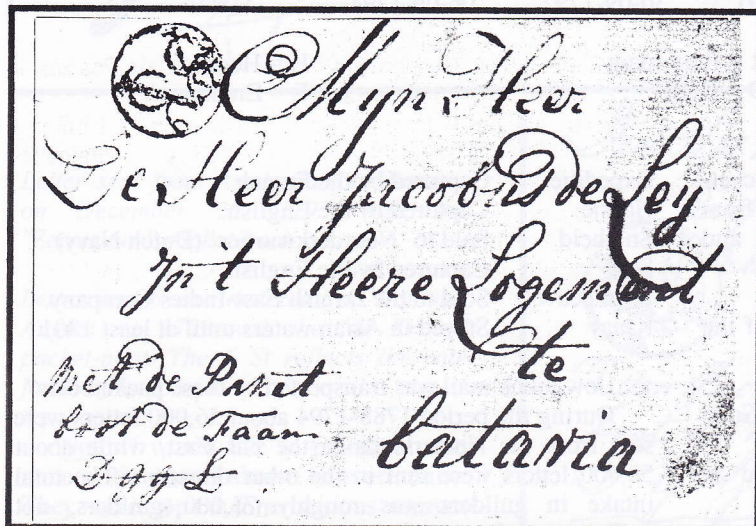 Mijn Heer
De Heer Jacobus de Ley
In t Heere Logement
te
batavia
Met de Paket
boot de